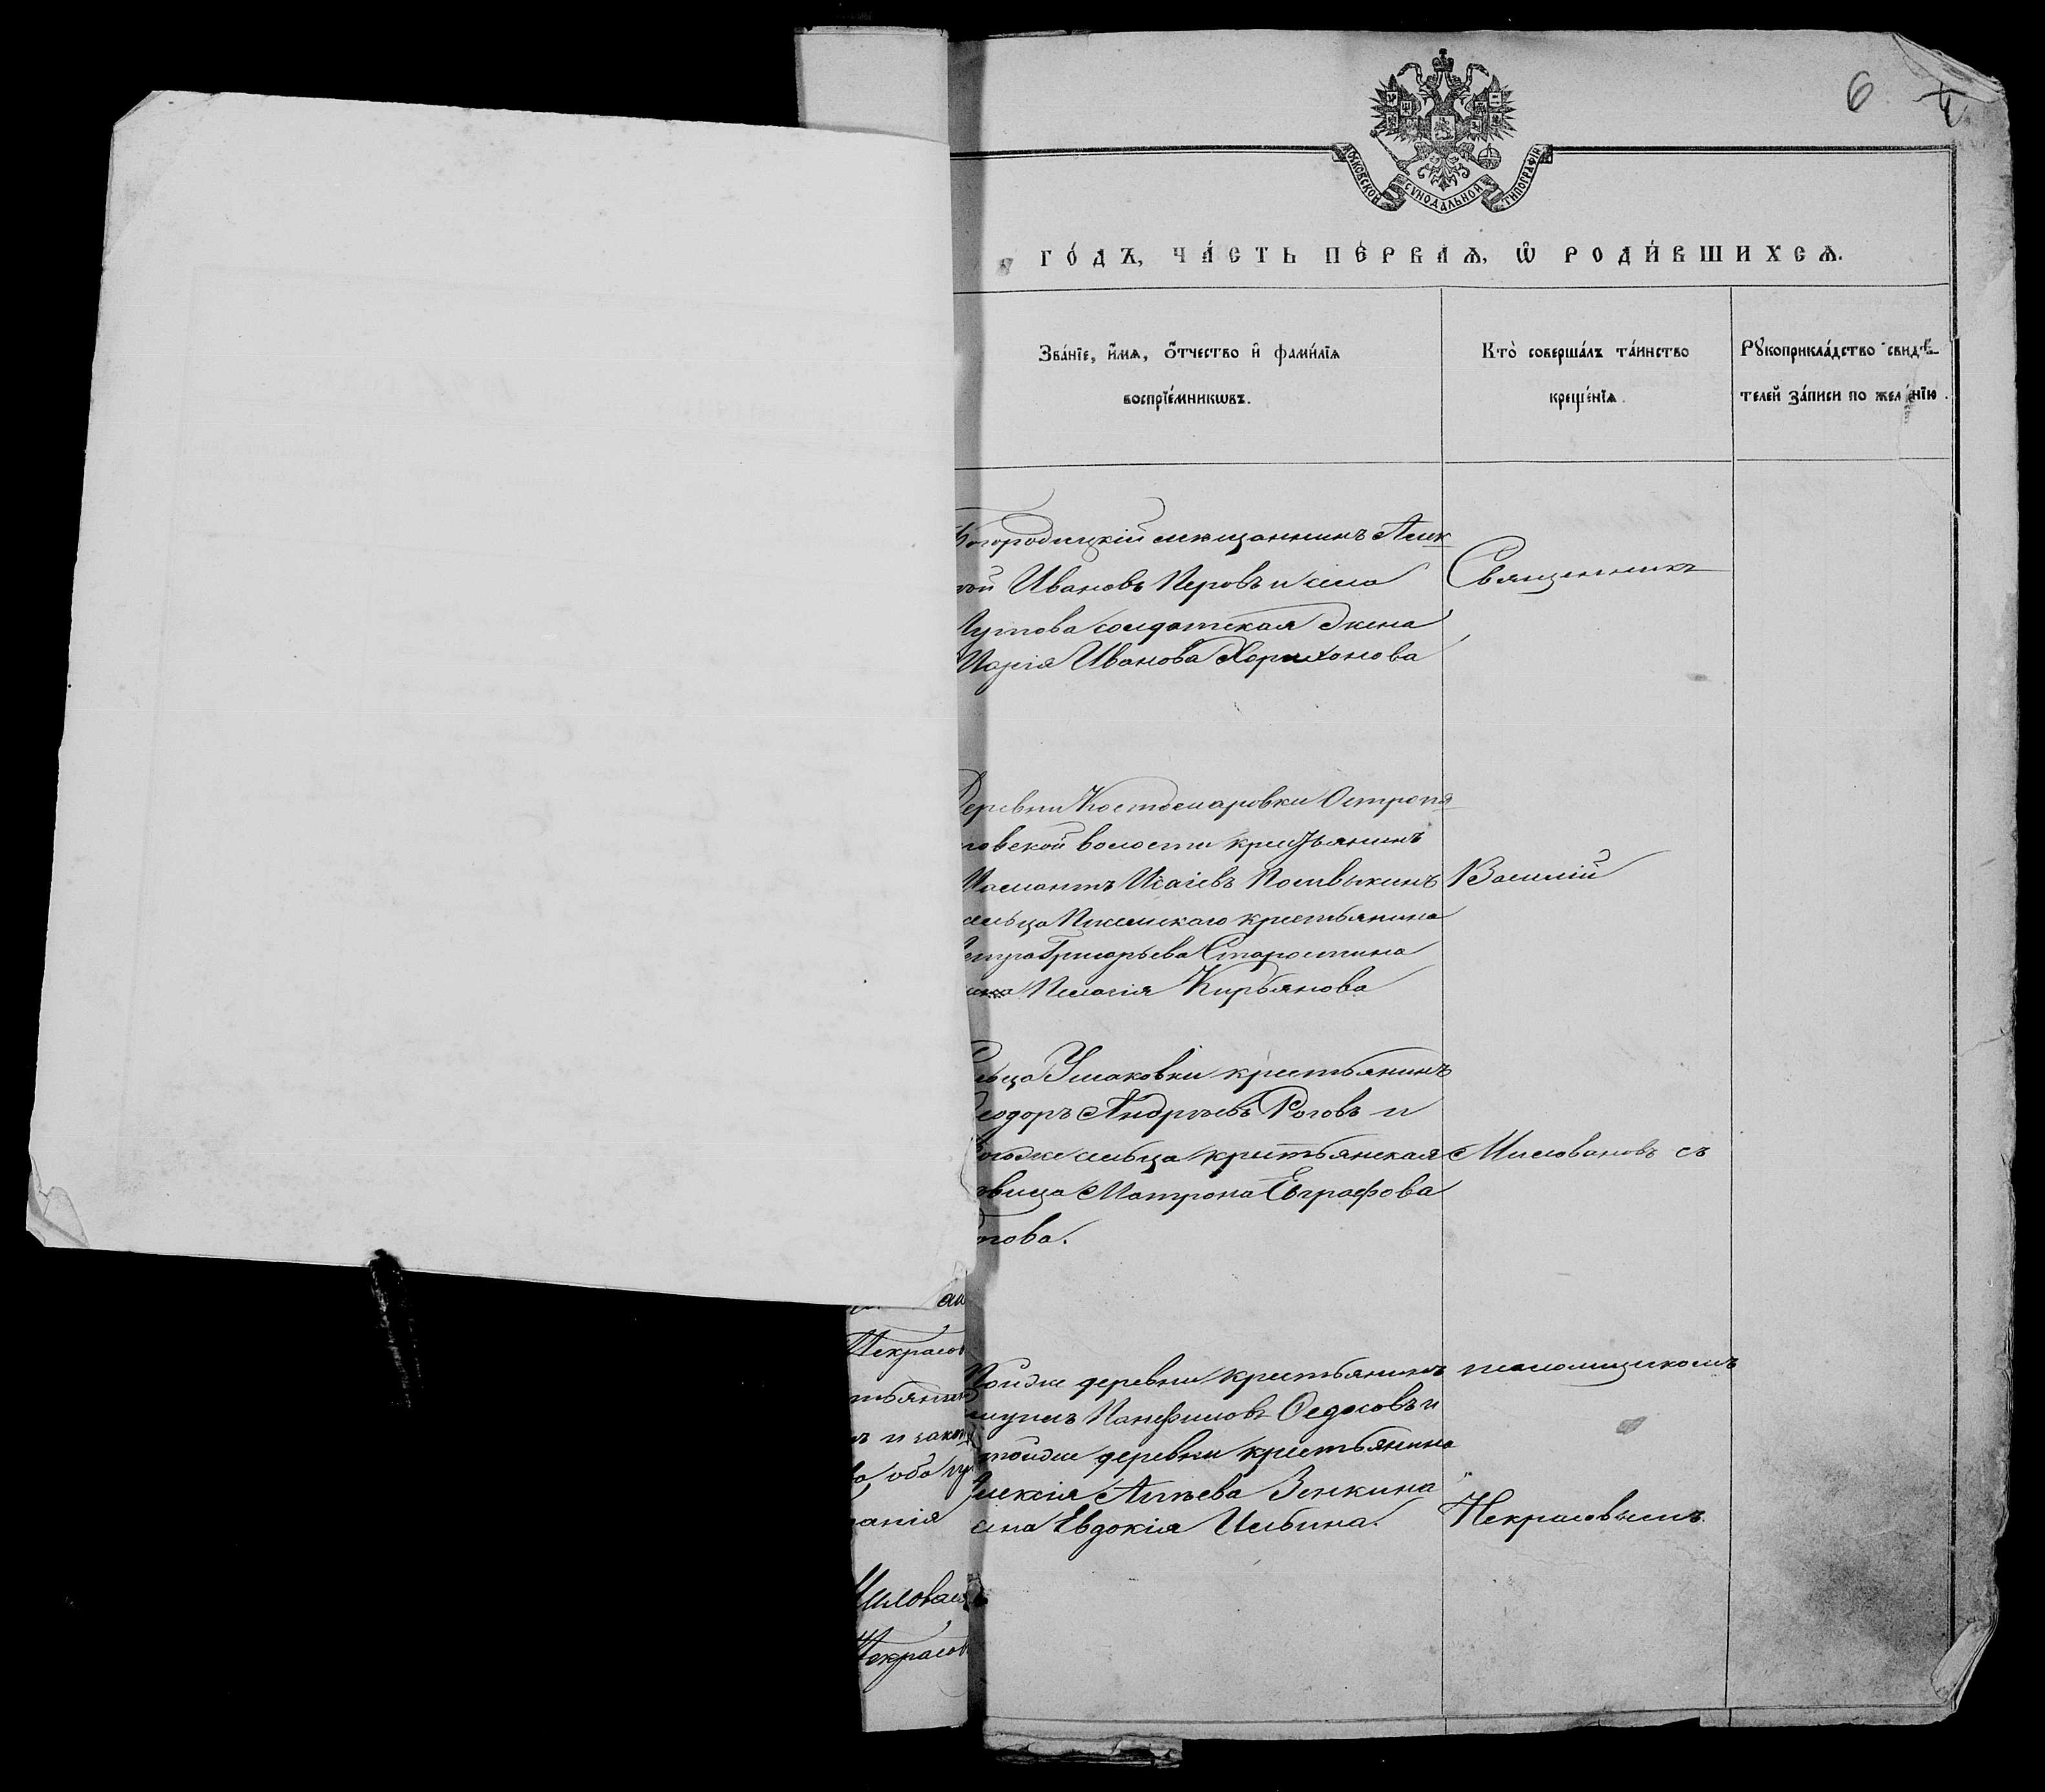 6
МОСКОВСКОЙ СУНОДАЛЬНОЙ ТИПОГРАФІИ
ГО́ДЪ, ЧА́СТЬ ПЕ́РВАѦ, Ѡ҆ РОДИ́ВШИХСѦ.
Зва́нїе, и҆́мѧ, ѻ҆́тчество и҆ фами́лїѧ
воспрїе́мникѡвъ.
Кто̀ соверша́лъ та́инство
креще́нїѧ.
Рꙋкоприкла́дство свидѣ-
телей за́писи по жела́нїю.
Богородицкій мещанинъ Алек
Ивановъ Перовъ и села
солдатская жена
Марія Иванова Харитонова
Священникъ
Деревни Костомаровки Остропя
товской волости крестьянинъ
Исаіевъ
сельца крестьянина
Петра Григорьева Старостина
жена Пелагія Кирьянова
Василій
Сельца Ушаковки крестьянинъ
Ѳеодоръ Андреевъ Роговъ и
тогоже сельца крестьянская
Матрона Евграфова
Миловановъ съ
Тойже деревни крестьянинъ
Панфиловъ Ѳедосовъ и
тойже деревни крестьянина
Алексія Зенкина
жена Евдокія Ильина.
псаломщикомъ
Некрасовымъ.
Некрасов
оба
Милован
Некрасов